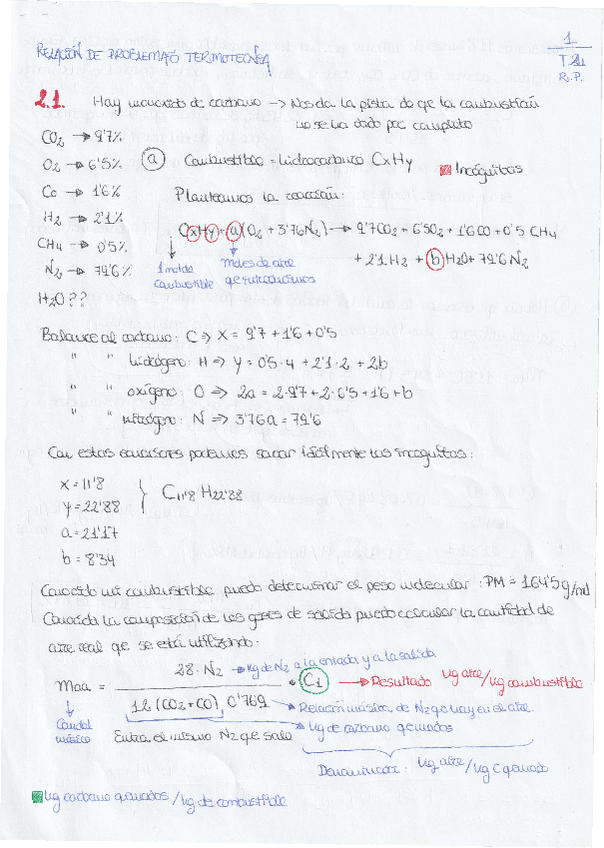 1
T 2.1
R.P.
RELACIÓN DE PROBLEMAS TERMOTECNIA
2.1. Hay monóxido de carbono -> Nos da la pista de que la combustión
no se ha dado por completo
CO2 -> 9'7%
O2 -> 6'5%
CO -> 1'6%
H2 -> 2'1%
CH4 -> 0'5%
N2 -> 79'6%
H2O ??
(a) Combustible = hidrocarburo CxHy
Incógnitas
Planteamos la reacción:
CxHy + a(O2 + 3'76N2) -> 9'7CO2 + 6'5O2 + 1'6CO + 0'5 CH4
+ 2'1 H2 + b H2O + 79'6 N2
1 mol de combustible
moles de aire que introducimos
Balance al carbono: C => X = 9'7 + 1'6 + 0'5
" " hidrógeno: H => Y = 0'5·4 + 2'1·2 + 2b
" " oxígeno: O => 2a = 2·9'7 + 2·6'5 + 1'6 + b
" " nitrógeno: N => 3'76a = 79'6
Con estas ecuaciones podemos sacar fácilmente las incógnitas:
x = 11'8
y = 22'88
a = 21'17
b = 8'34
C11'8 H22'88
Conocido mi combustible puedo determinar el peso molecular: PM = 164'5 g/mol
Conocida la composición de los gases de salida puedo calcular la cantidad de
aire real que se está utilizando:
28·N2 -> kg de N2 a la entrada y a la salida
Maa = · C1 -> Resultado kg aire/kg combustible
12 (CO2+CO) 0'769 -> Relación másica de N2 que hay en el aire.
Caudal másico
Entra el mismo N2 que sale
kg de carbono quemados
Denominador: kg aire/kg C quemado
kg carbono quemados/kg de combustible